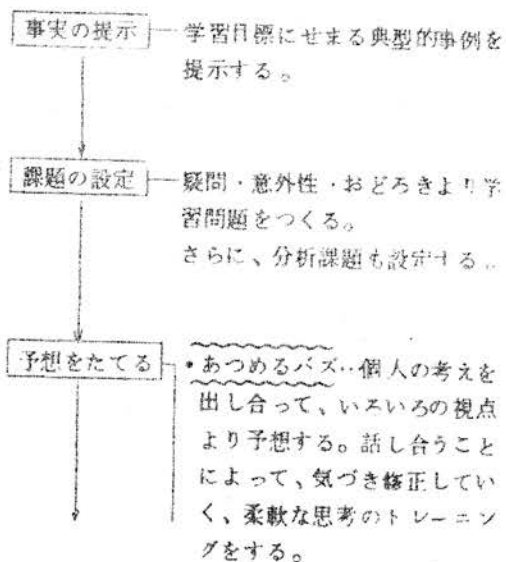 事実の提示 学習目標にせまる典型的事例を
提示する。
課題の設定 疑問・意外性・おどろきより学
習問題をつくる。
さらに、分析課題も設定する。
予想をたてる ・あつめるバズ‥個人の考えを
出し合って、いろいろの視点
より予想する。話し合うこと
によって、気づき修正してい
く、柔軟な思考のトレーニン
グをする。